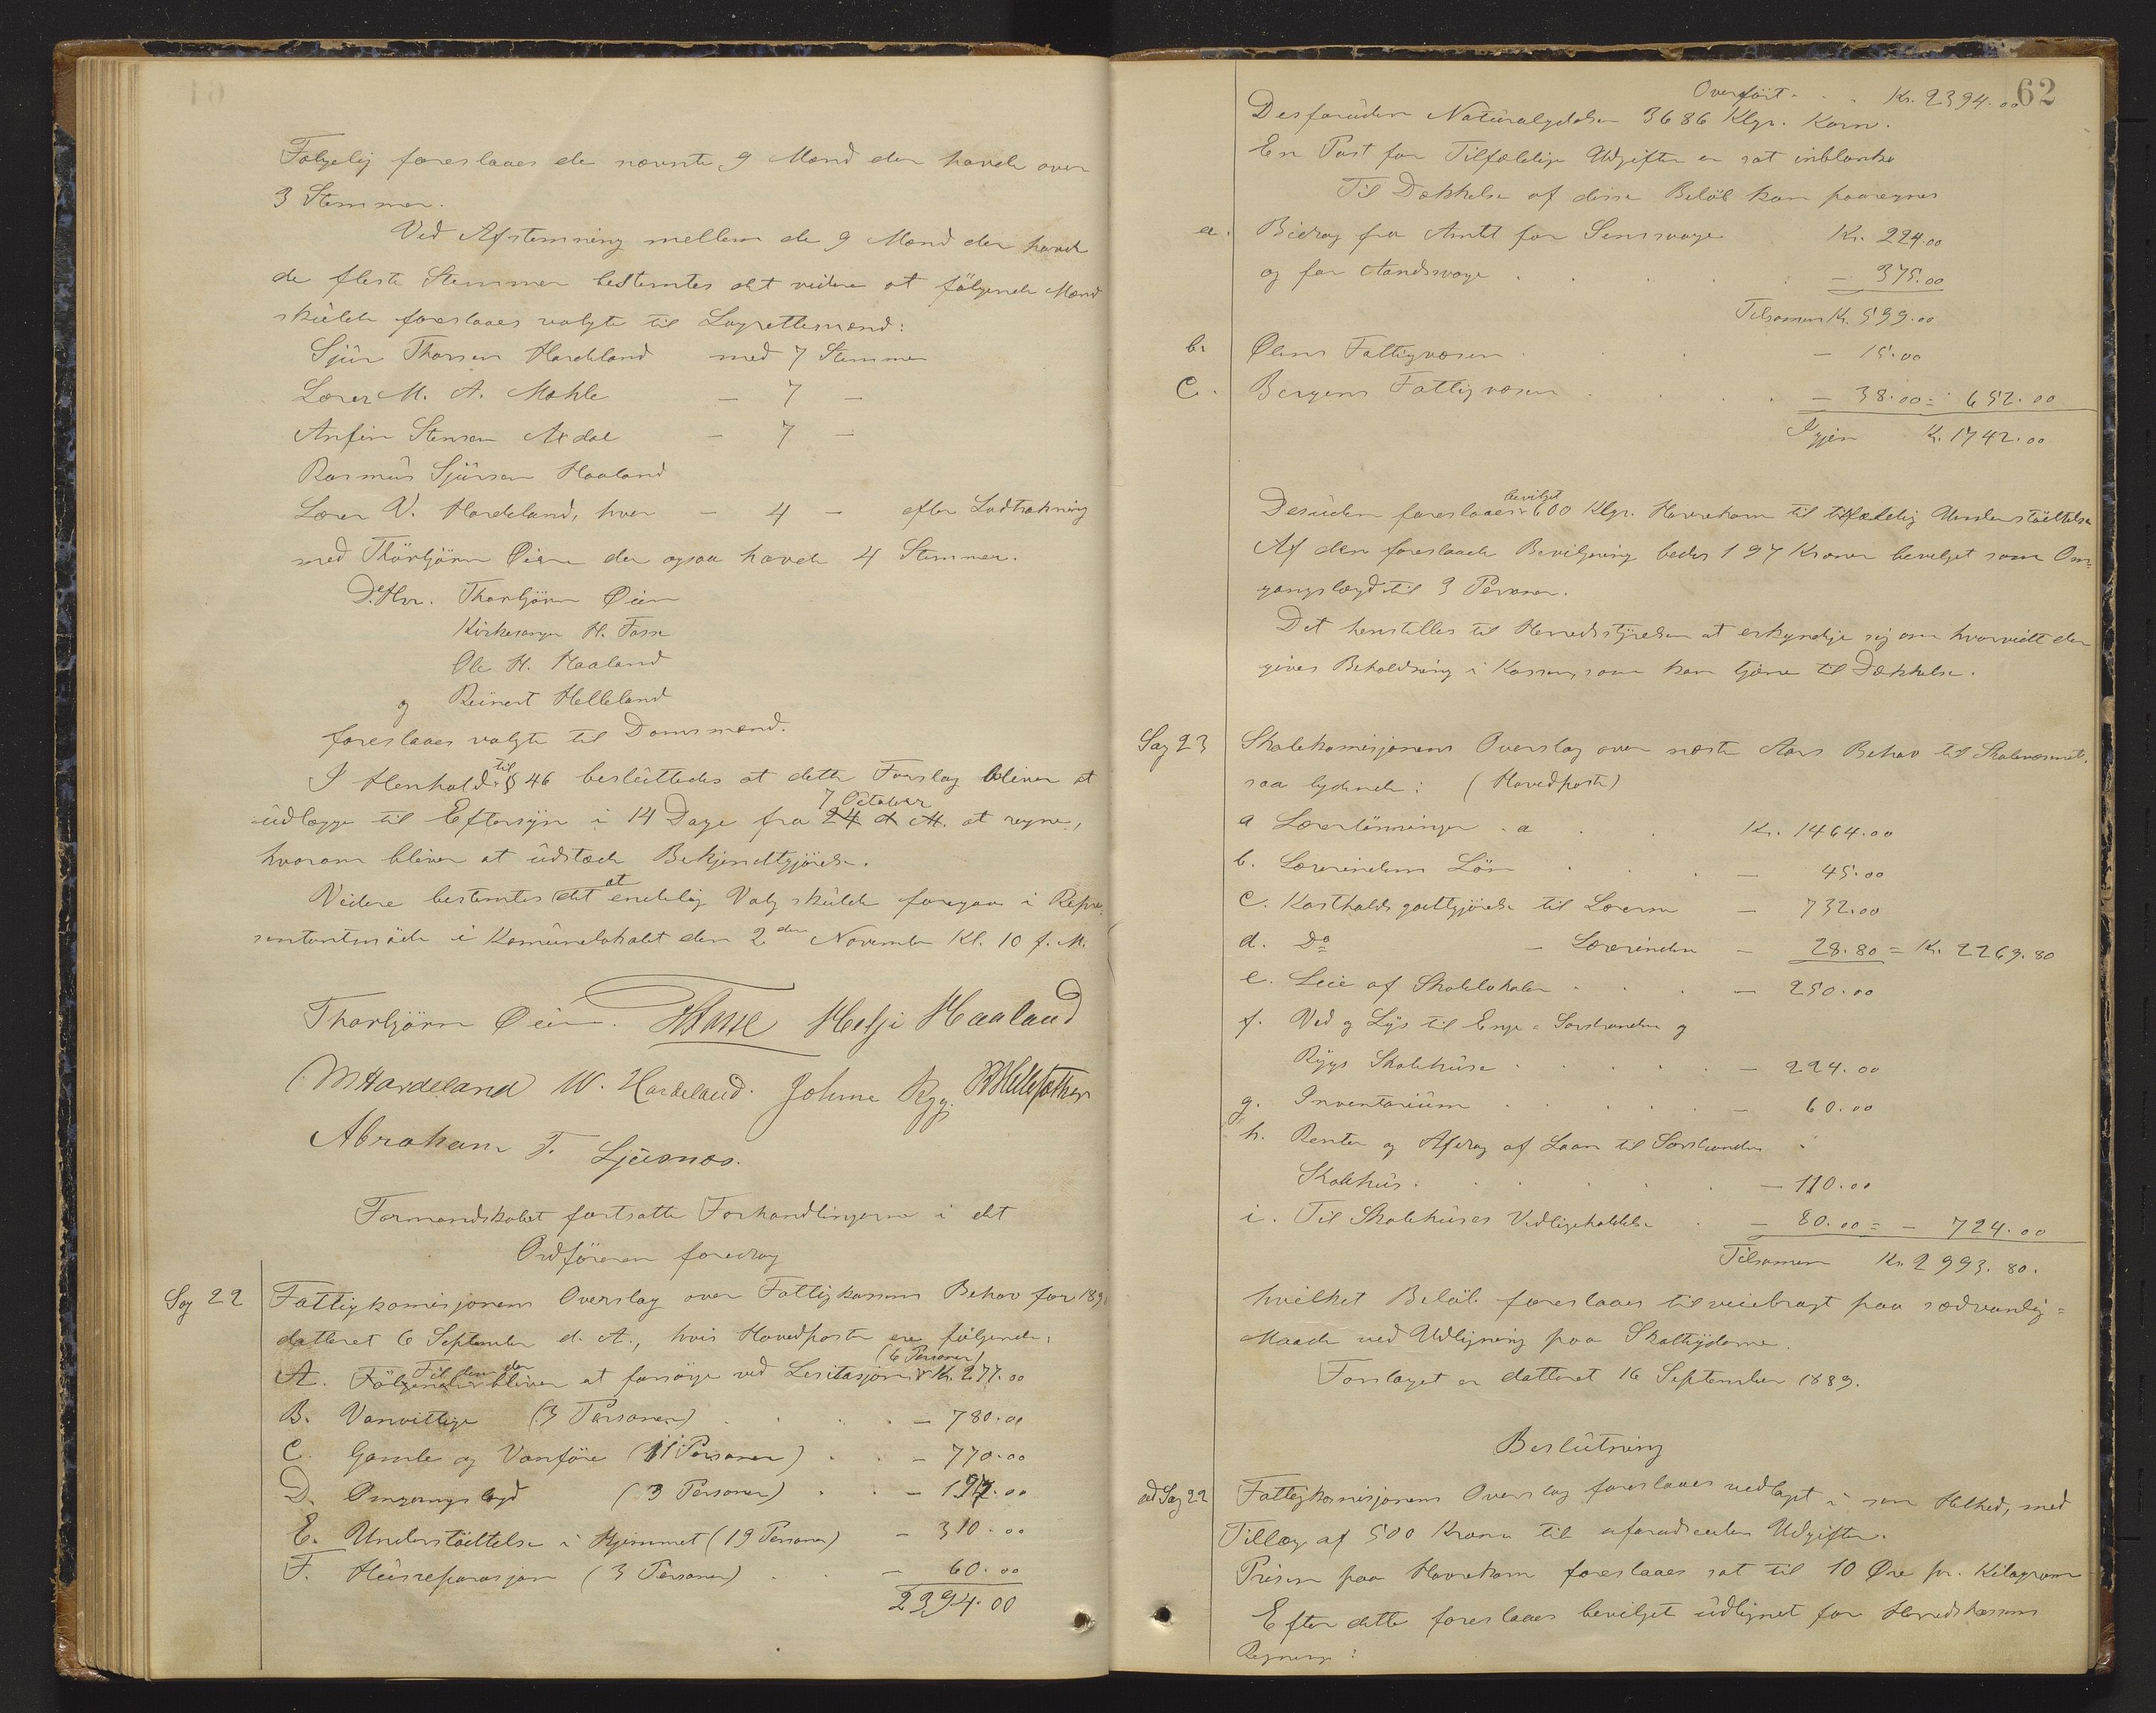 Følgelig foreslaaes de nævnte 9 Mænd der havde over
3 Stemmer.
Ved Afstemning mellem de 9 Mænd der havde
de fleste Stemmer bestemtes det videre at følgende Mænd
skulde foreslaaes valgte til Lagrettemænd:
Sjur Thorsen Hardeland med 7 Stemmer
Lærer M. A. Mæhle — 7 —
Anfin Stensen Axdal — 7 —
Rasmus Sjursen Haaland
Lærer V. Hardeland, hver — 4 — efter Lodtrækning
med Thorbjørn Øien der ogsaa havde 4 Stemmer.
D'Hrr. Thorbjørn Øien
Kirkesanger H. Fosse
Ole H. Haaland
og Reinert Helleland
foreslaaes valgte til Domsmænd.
I Henhold til § 46 besluttedes at dette Forslag bliver at
udlægge til Eftersyn i 14 Dage fra 24 d. M. 7 October at regne,
hvorom bliver at udstæde Bekjendtgjørelse.
Videre bestemtes det at endelig Valg skulde foregaa i Repræ-
sentantmøde i Komunelokalet den 2den November Kl. 10 f. M.
Thorbjørn Øien. HFosse Helje Haaland
MHardeland W. Hardeland. Johne Ryg.
Abraham T. Ljusnæs.
Formandskabet fortsatte Forhandlingerne i det
Ordføreren foredrog
Sag 22 Fattigkomisjonens Overslag over Fattigkassens Behov for 189
datteret 6 September d. A., hvis Hovedposter ere følgende:
A. Til den der bliver at forsørge ved Lesitasjon (6 Personer) Kr. 277.00
B. Vanvittige (3 Personer) — 780.00
C. Gamle og Vanføre (11 Personer) — 770.00
D. Omgangslægd (3 Personer) — 197.00
E. Understøettelse i Hjemmet (19 Personer) — 310.00
F. Husreparasjon (3 Personer) — 60.00
2394.00
62
Overført Kr. 2394.00
Desforuden Naturalydelsen 3686 Klgr. Korn.
En Post for Tilfældige Udgifter er sat inblanko
Til Dækkelse af disse Beløb kan paaregnes
a. Bidrag fra Amtet for Sinssvage Kr. 224.00
og for Aandsvage — 375.00
Tilsamen Kr. 599.00
b. Ølens Fattigvæsen — 15.00
C. Bergens Fattigvæsen — 38.00 = 652.00
Igjen K. 1742.00
Desuden foreslaaes bevilget 600 Klgr. Havrekorn til tilfældig Understøettelse
Af den foreslaaede Bevilgning bedes 197 Kroner bevilget som Om-
gangslægd til 3 Personer.
Det henstilles til Herredsstyrelsen at erkyndige sig om hvorvidt der
gives Beholdning i Kassen, som kan tjene til Dækkelse.
Sag 23 Skolekomisjonens Overslag over næste Aars Behov til Skolevæsenet.
saa lydende: (Hovedposte)
a Lærerlønninger a Kr. 1464.00
b. Lærerindens Løn — 45.00
C. Kostholdsgodtgjørelse til Lærerne — 732.00
d. Do — Lærerinden — 28.80 = Kr. 2269.80
e. Leie af Skolelokaler — 250.00
f. Ved og Lys til Enge- Sørstranden og
Rygs Skolehuse — 224.00
g. Inventarium — 60.00
h. Renter og Afdrag af Laan til Sørstranden
Skolehus. — 110.00
i. Til Skolehuses Vedligeholdelse — 80.00 = — 724.00
Tilsamen Kr. 2993.80.
hvilket Beløb foreslaaes tilveiebragt paa sædvanlig=
Maade ved Udligning paa Skatteyderne.
Forslaget er datteret 16 September 1889.
Beslutning
ad Sag 22 Fattigkomisjonens Overslag foreslaaes vedtaget i sin Helhed, med
Tillæg af 500 Kroner til uforudseede Udgifter.
Prisen paa Havrekorn foreslaaes sat til 10 Øre pr. Kilogram
Efter dette foreslaaes bevilget udlignet for Herredskassens
Regning: